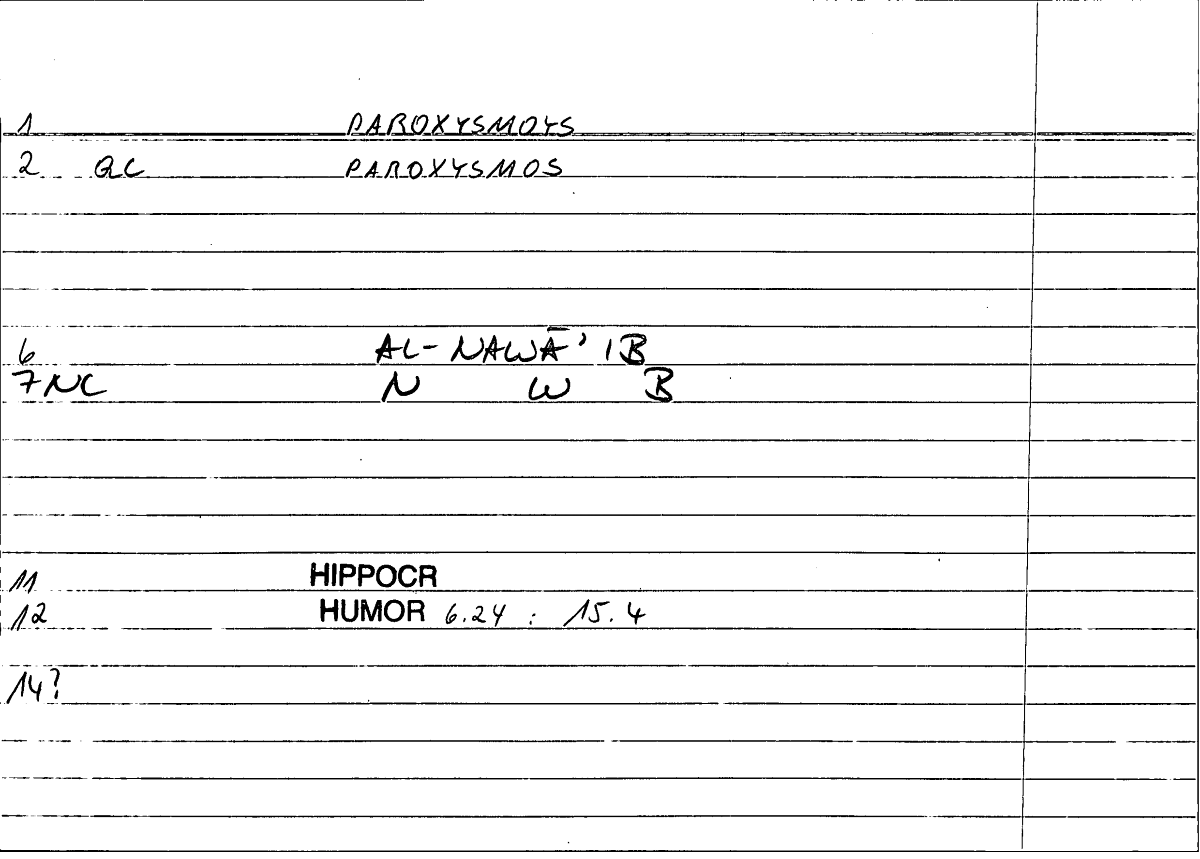 1 PAROXYSMOYS
2 GC PAROXYSMOS
6 AL-NAWĀ'IB
7 NC N W B
11 HIPPOCR
12 HUMOR 6.24 : 15.4
14?